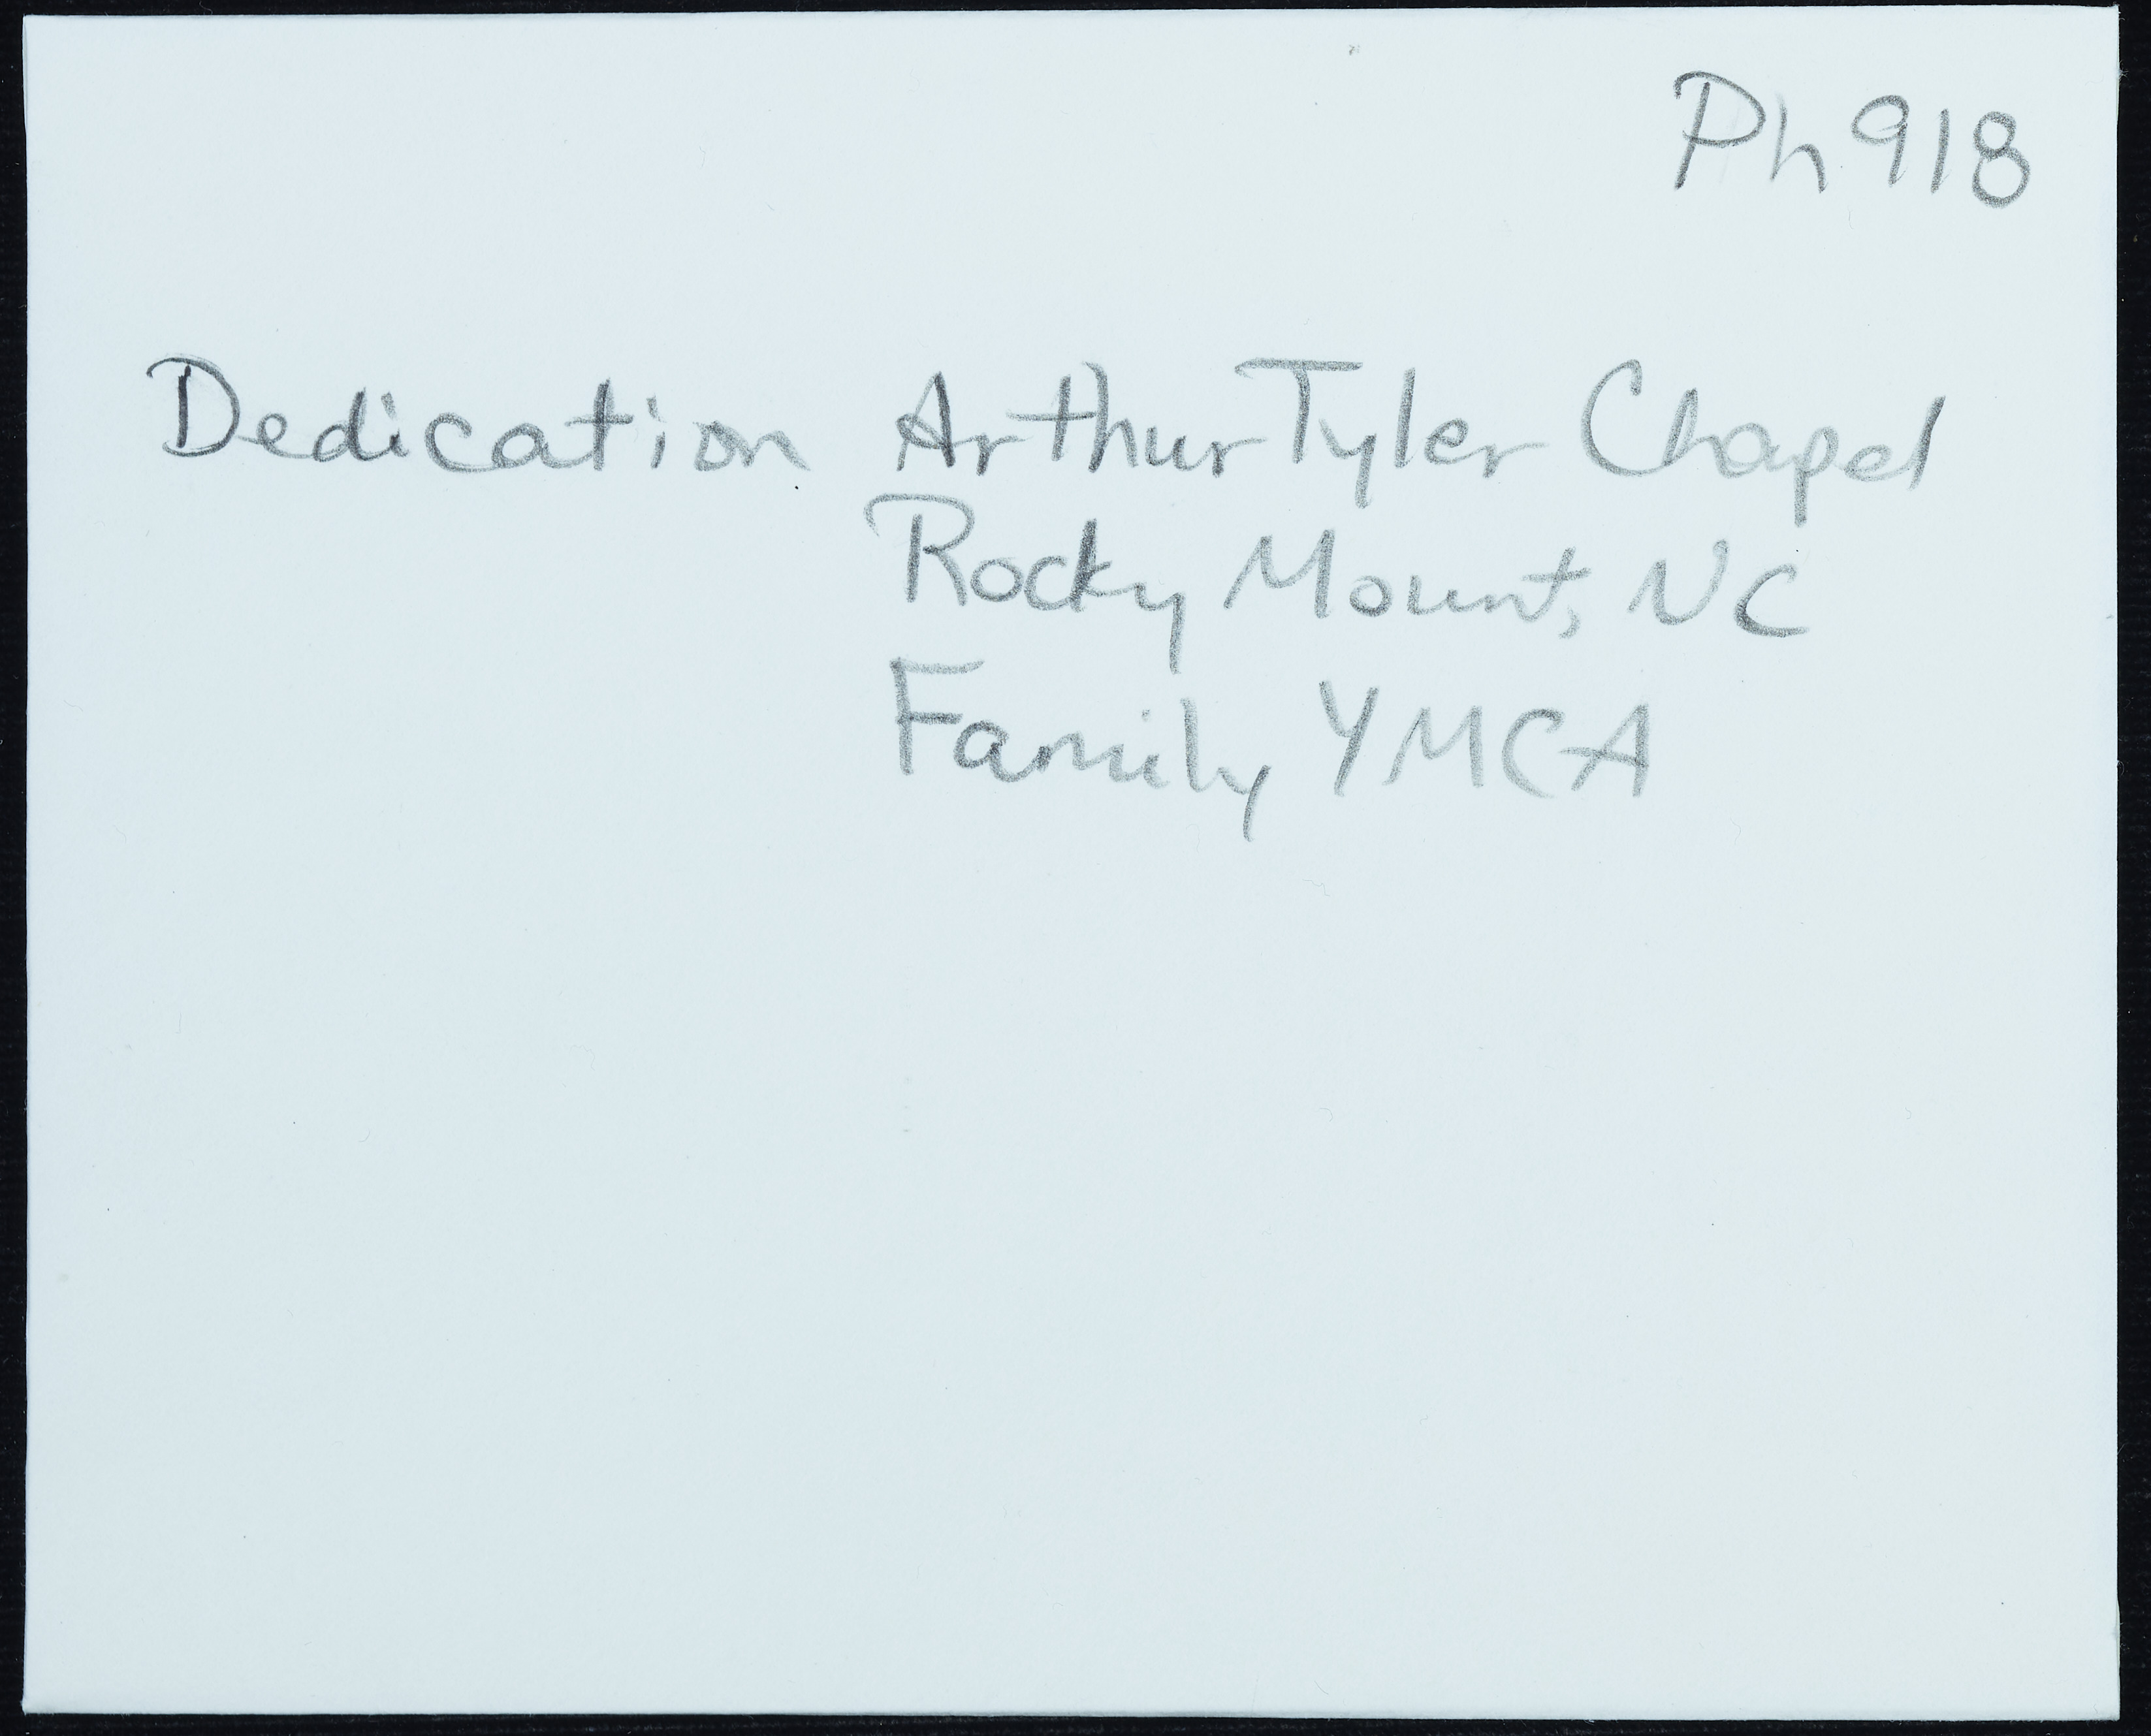 Ph 918
Dedication Arthur Tyler Chapel
Rocky Mount, NC
Family YMCA